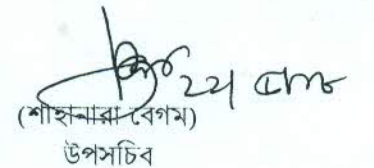 (শাহানারা বেগম)
উপসচিব